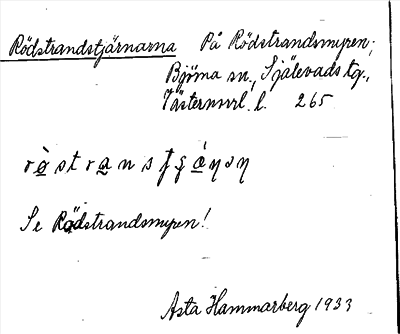 Rödstrandstjärnarna På Rödstrandsmyren;
Björna sn., Själevads tg.,
Västernorrl. l. 265
Se Rödstrandsmyren!
Asta Hammarberg 1933